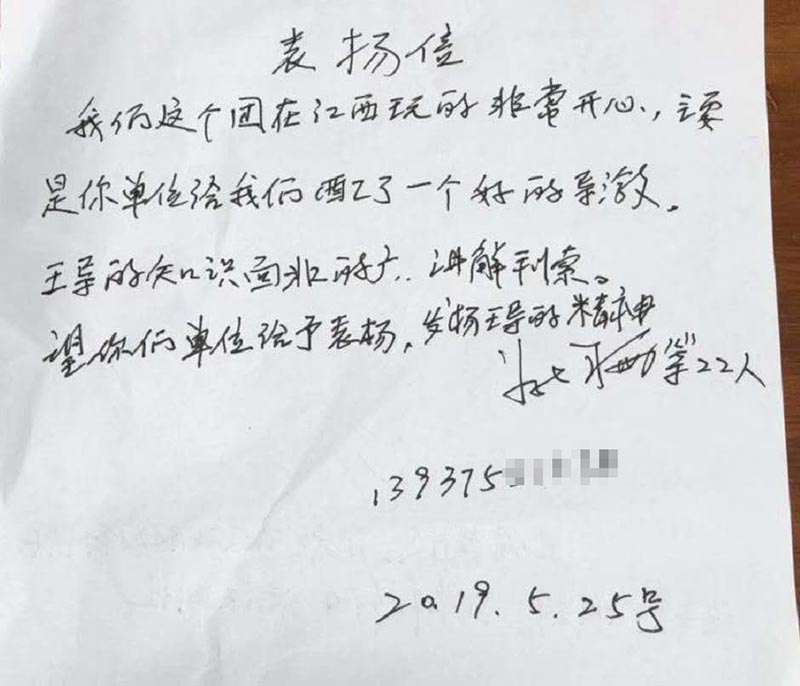 表扬信
我们这个团在江西玩的非常开心,主要
是你单位给我们配了一个好的导游。
王导的知识面非的广..讲解利索。
望你们单位给予表扬,发扬王导的精神
等22人
139375
2019.5.25号